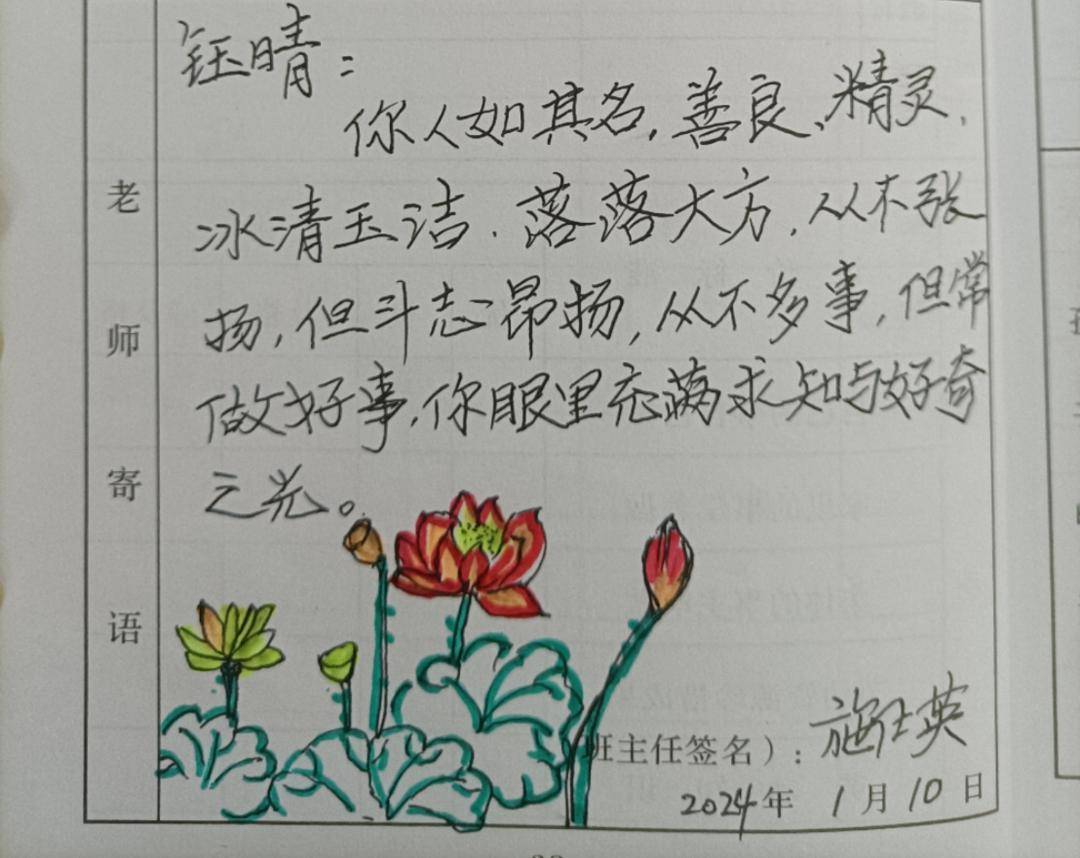 钰晴：
你人如其名，善良、精灵，
冰清玉洁．落落大方，从不张
扬，但斗志昂扬，从不多事，但常
做好事，你眼里充满求知与好奇
之光。
老师寄语
（班主任签名）：施仕英
2024年 1月10日